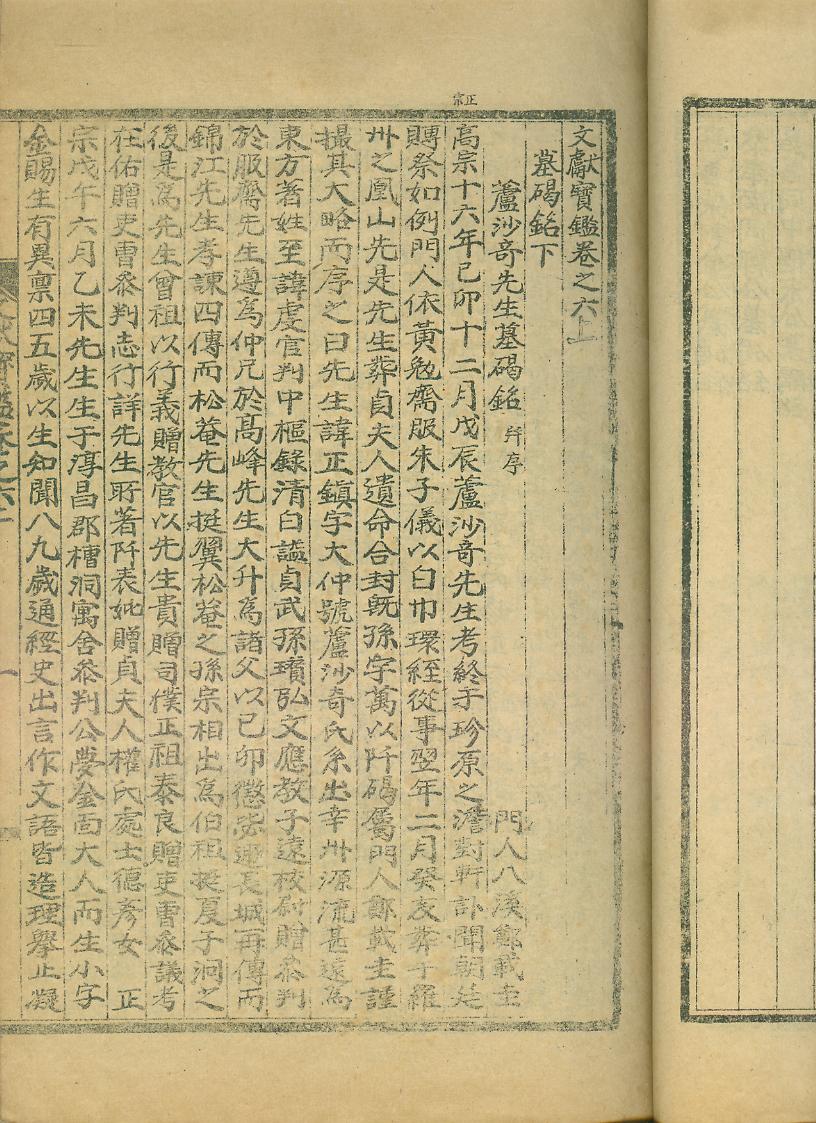 正宗
文獻寶鑑卷之六上
墓碣銘下
蘆沙奇先生墓碣銘 幷序 門人八溪鄭載圭
高宗十六年己卯十二月戊辰蘆沙奇先生考終于珍原之澹對軒訃聞朝廷
賻祭如例門人依黃勉齋服朱子儀以白巾環絰從事翌年二月癸亥葬于羅
州之凰山先是先生葬貞夫人遺命合封旣孫宇萬以阡碣屬門人鄭載圭謹
撮其大略而序之曰先生諱正鎭字大仲號蘆沙奇氏系出幸州源流甚遠爲
東方著姓至諱虔官判中樞錄淸白諡貞武孫瓚弘文應敎子遠校尉贈叅判
於服齋先生遵爲仲兄於高峰先生大升爲諸父以己卯懲毖遯長城再傳而
錦江先生孝諫四傳而松菴先生挺翼松菴之孫宗相出爲伯祖挺夏子洞之
後是爲先生曾祖以行義贈敎官以先生貴贈司僕正祖泰良贈吏曹叅議考
在佑贈吏曹叅判志行詳先生所著阡表妣贈貞夫人權氏處士德彥女 正
宗戊午六月乙未先生生于淳昌郡槽洞寓舍叅判公夢金面大人而生小字
金賜生有異禀四五歲以生知聞八九歲通經史出言作文語皆造理擧止凝